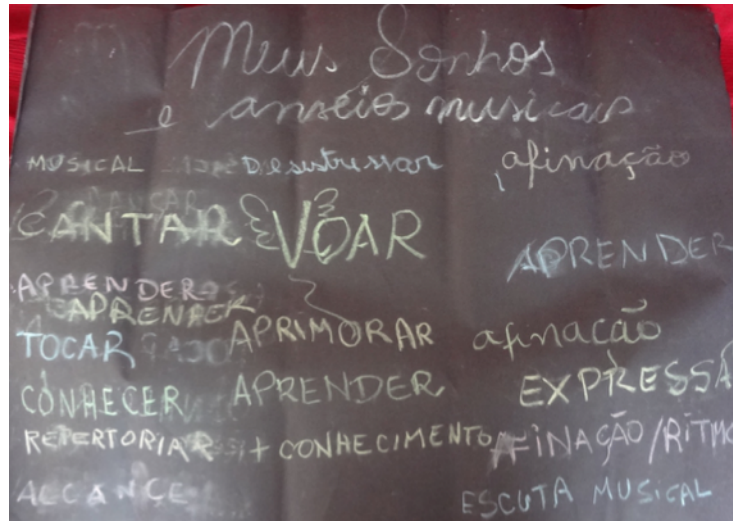 Meus Sonhos
e anseios musicais
MUSICAL Desestressar afinação
CANTAR VOAR
APRENDER
APRENDER
APRENDER
TOCAR APRIMORAR afinacão
CONHECER APRENDER EXPRESSÃ
REPERTORIAR + CONHECIMENTO AFINAÇÃO/RITMO
ALCANCE ESCUTA MUSICAL